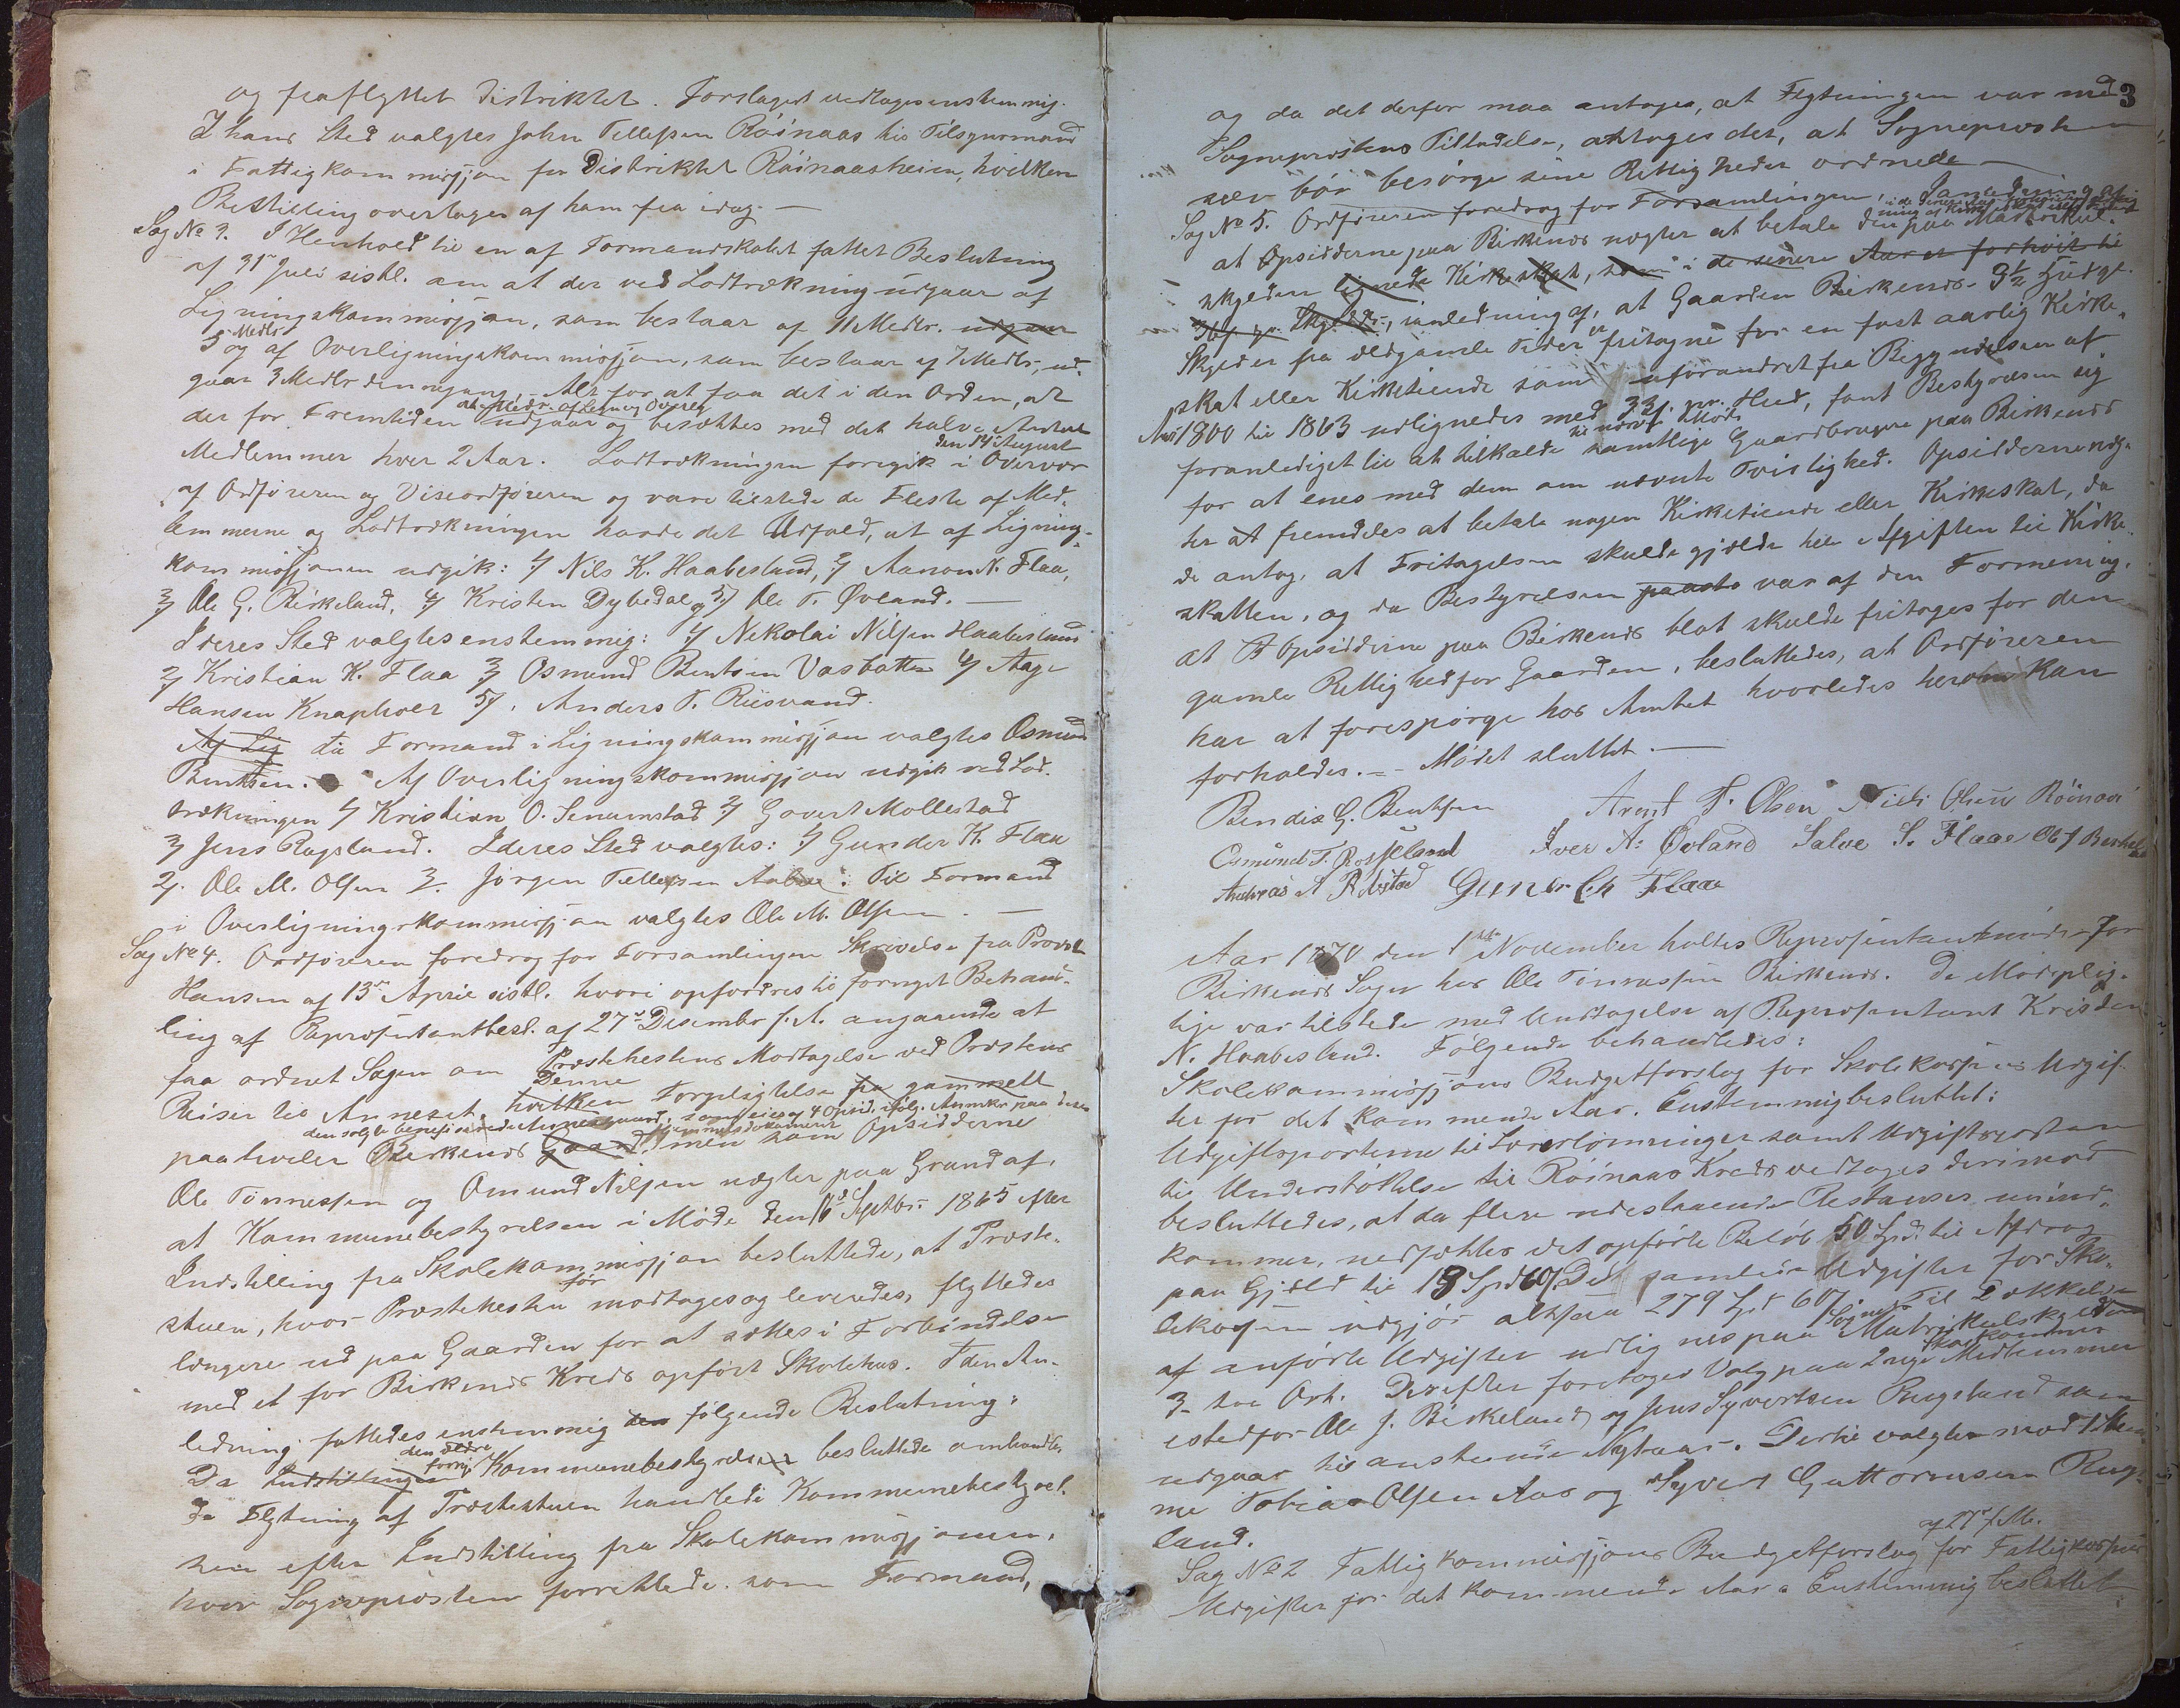 og fraflyttet Distriktet. Forslaget vedtages enstemmig.
I hans Sted valgtes John Tellefsen Röinaas til Tilsynsmand
i Fattigkommisjon for Distriktet Röinaasheien, hvilken
Bestilling overtages af ham fra idag. —
Sag No 3. I Henhold til en af Formandskabet fattet Beslutning
af 31te Juli sistl. om at der ved Lodtrækning udgaar af
Ligningskommisjon, som bestaar af 11 Medlr. udgaar
5 Medlr og af Overligningskommisjon, som bestaar af 7 Medlr, ud-
gaar 3 Medlr dennegang, Alt for at faa det i den Orden, at
der for Fremtiden udgaar og besættes med det halve Antal
Medlemmer hver 2 Aar. Lodtrækningen foregik den 14de August i Overvær
af Ordføreren og Viseordføreren og vare tilstede de Fleste af Med-
lemmerne og Lodtrækningen havde det Udfald, at af Lignings-
kommisjonen udgik: 1/ Nils K. Haabesland, 2/ Aanon N. Flaa,
3/ Ole G. Birkeland, 4/ Kristen Dybedal og 5/ Ole T. Øvland. —
I deres Sted valgtes enstemmig: 1/ Nikolai Nilsen Haabesland
2/ Kristian K. Flaa 3/ Osmund Bentsen Vasbotten 4/ Aage
Hansen Knaphoer 5/. Anders T. Risvand.
Af Lig til Formand i Ligningskommisjon valgtes Osmund
Bentsen. Af Overligningskommisjon udgik ved Lod-
trækningen 1/ Kristian O. Senumstad 2/ Govert Mollestad
3/ Jens Rugsland. I deres Sted valgtes: 1/ Gunder K. Flaa
2/. Ole M. Olsen 3/. Jørgen Tellefsen. Til Formand
i Overligningskommisjon valgtes Ole M. Olsen. —
Sag No 4. Ordføreren foredrog for Forsamlingen Skrivelse fra Provst
Hansen af 13de April sistl. hvori opfordres til fornyet Behand-
ling af Repræsentantbesl. af 27de Desember f. A. angaaende at
faa ordnet Sagen om Prestehestens Modtagelse ved Prestens
Reiser til Annexet. hvilken Denne Forpligtelse fra gammelt
paahviler den solgte benefiserede Annexgaard Birkenes Gaard, som eies af 4 Opsid. ifølg. Anmkr paa deres Hjemmelsdokumenter men som Opsidderne
Ole Tönnesen og Omund Nilsen nægter paa Grund af,
at Kommunebestyrelsen i Møde den 16de Septbr. 1865 efter
Indstilling fra Skolekommisjon besluttede, at Preste-
stuen, hvor Prestehesten før modtages og leveredes, flyttedes
længere ud paa Gaarden for at sættes i Forbindelse
med et for Birkenes Kreds opført Skolehus. I den An-
ledning fattedes enstemmig den følgende Beslutning:
Da Indstillingen den ældre forrige Kommunebestyrelse besluttede omhandle-
de Flytning af Prestestuen handlede Kommunebestyrel-
sen efter Indstilling fra Skolekommisjonen,
hvor Sognepresten forrettede som Formand,
3
og da det derfor maa antages, at Flytningen var med
Sogneprestens Tilladelse, antages det, at Sognepresten
selv bör besörge sine Rettigheder ordnede —
Sag No 5. Ordføreren foredrog for Forsamlingen,
at Opsidderne paa Birkenes nægter at betale den paa Matrikul-
skylden lignede Kirkeskat, som i de senere Aar er forhöiet til
pr. Skyldd., i Anledning af, at Gaarden Birkenes 3½ Huds
Skyld er fra eldgamle Tider fritagne for en fast aarlig Kirke-
skat eller Kirketiende som uforandret fra Begyndelsen af
Aar 1800 til 1863 udlignedes med 32 s. pr. Hud, fant Bestyrelsen sig
foranlediget til at tilkalde til nærv. Møde samtlige Gaardbrugere paa Birkenes
for at enes med dem om nævnte Tvistighed. Opsidderne næg-
ter at fremdeles at betale nogen Kirketiende eller Kirkeskat, da
de antog, at Fritagelsen skulde gjælde hele Afgiften til Kirke-
skatten, og da Bestyrelsen var af den Formening,
at Opsidderne paa Birkenes blot skulde fritages for den
gamle Rettighed for Gaarden, besluttedes, at Ordføreren
har at forespørge hos Amtet hvorledes herom kan
forholdes. — Mödet sluttet. —
Bendix G. Bentsen Arent F. Olsen Niels Olsen Röinaas
Osmund T. Rosseland Iver A. Øvland Salve S. Flaae O G Birkeland
Andreas A Rebstad Gunder Ch Flaae
Aar 1870 den 1ste November holtes Repræsentantmöde for
Birkenes Sogn hos Ole Tönnessen Birkenes. De Mödeplig-
tige var tilstede med Undtagelse af Repræsentant Kristen
N. Haabesland. Følgende behandledes:
Skolekommisjons Budgetforslag for Skolekassens Udgif-
ter for det kommende Aar. Enstemmig besluttet:
Udgiftsposterne til Lærerlønninger samt Udgiftsposten
til Understöttelse til Röinaas Kreds vedtages derimod
besluttedes, at da flere udestaaende Restanser unind-
kommer, nedsættes det opförte Beløb 50 Spd. til Afdrag
paa Gjæld til 19 Spd 60 s. De samlede Udgifter for Sko-
lekassen udgjör altsaa 279 Spd 60 s. Til Dækkelse
af anförte Udgifter udlignes paa Sognets Matrikulskyld
3 tre Ort. Derefter foretages Valg paa 2 nye Skolekommis Medlemmer
istedfor Ole J. Birkeland og Jens Syvertsen Rugsland som
udgaar til anstundende Nytaar. Dertil valgtes mod 1 Stem-
me Tobias Olsen Aas og Syvert Guttormsen Rugs-
land.
Sag No 2 Fattigkommisjons Budgetforslag af 27de f. M. for Fattigkassens
Udgifter for det kommende Aar. Enstemmig besluttet